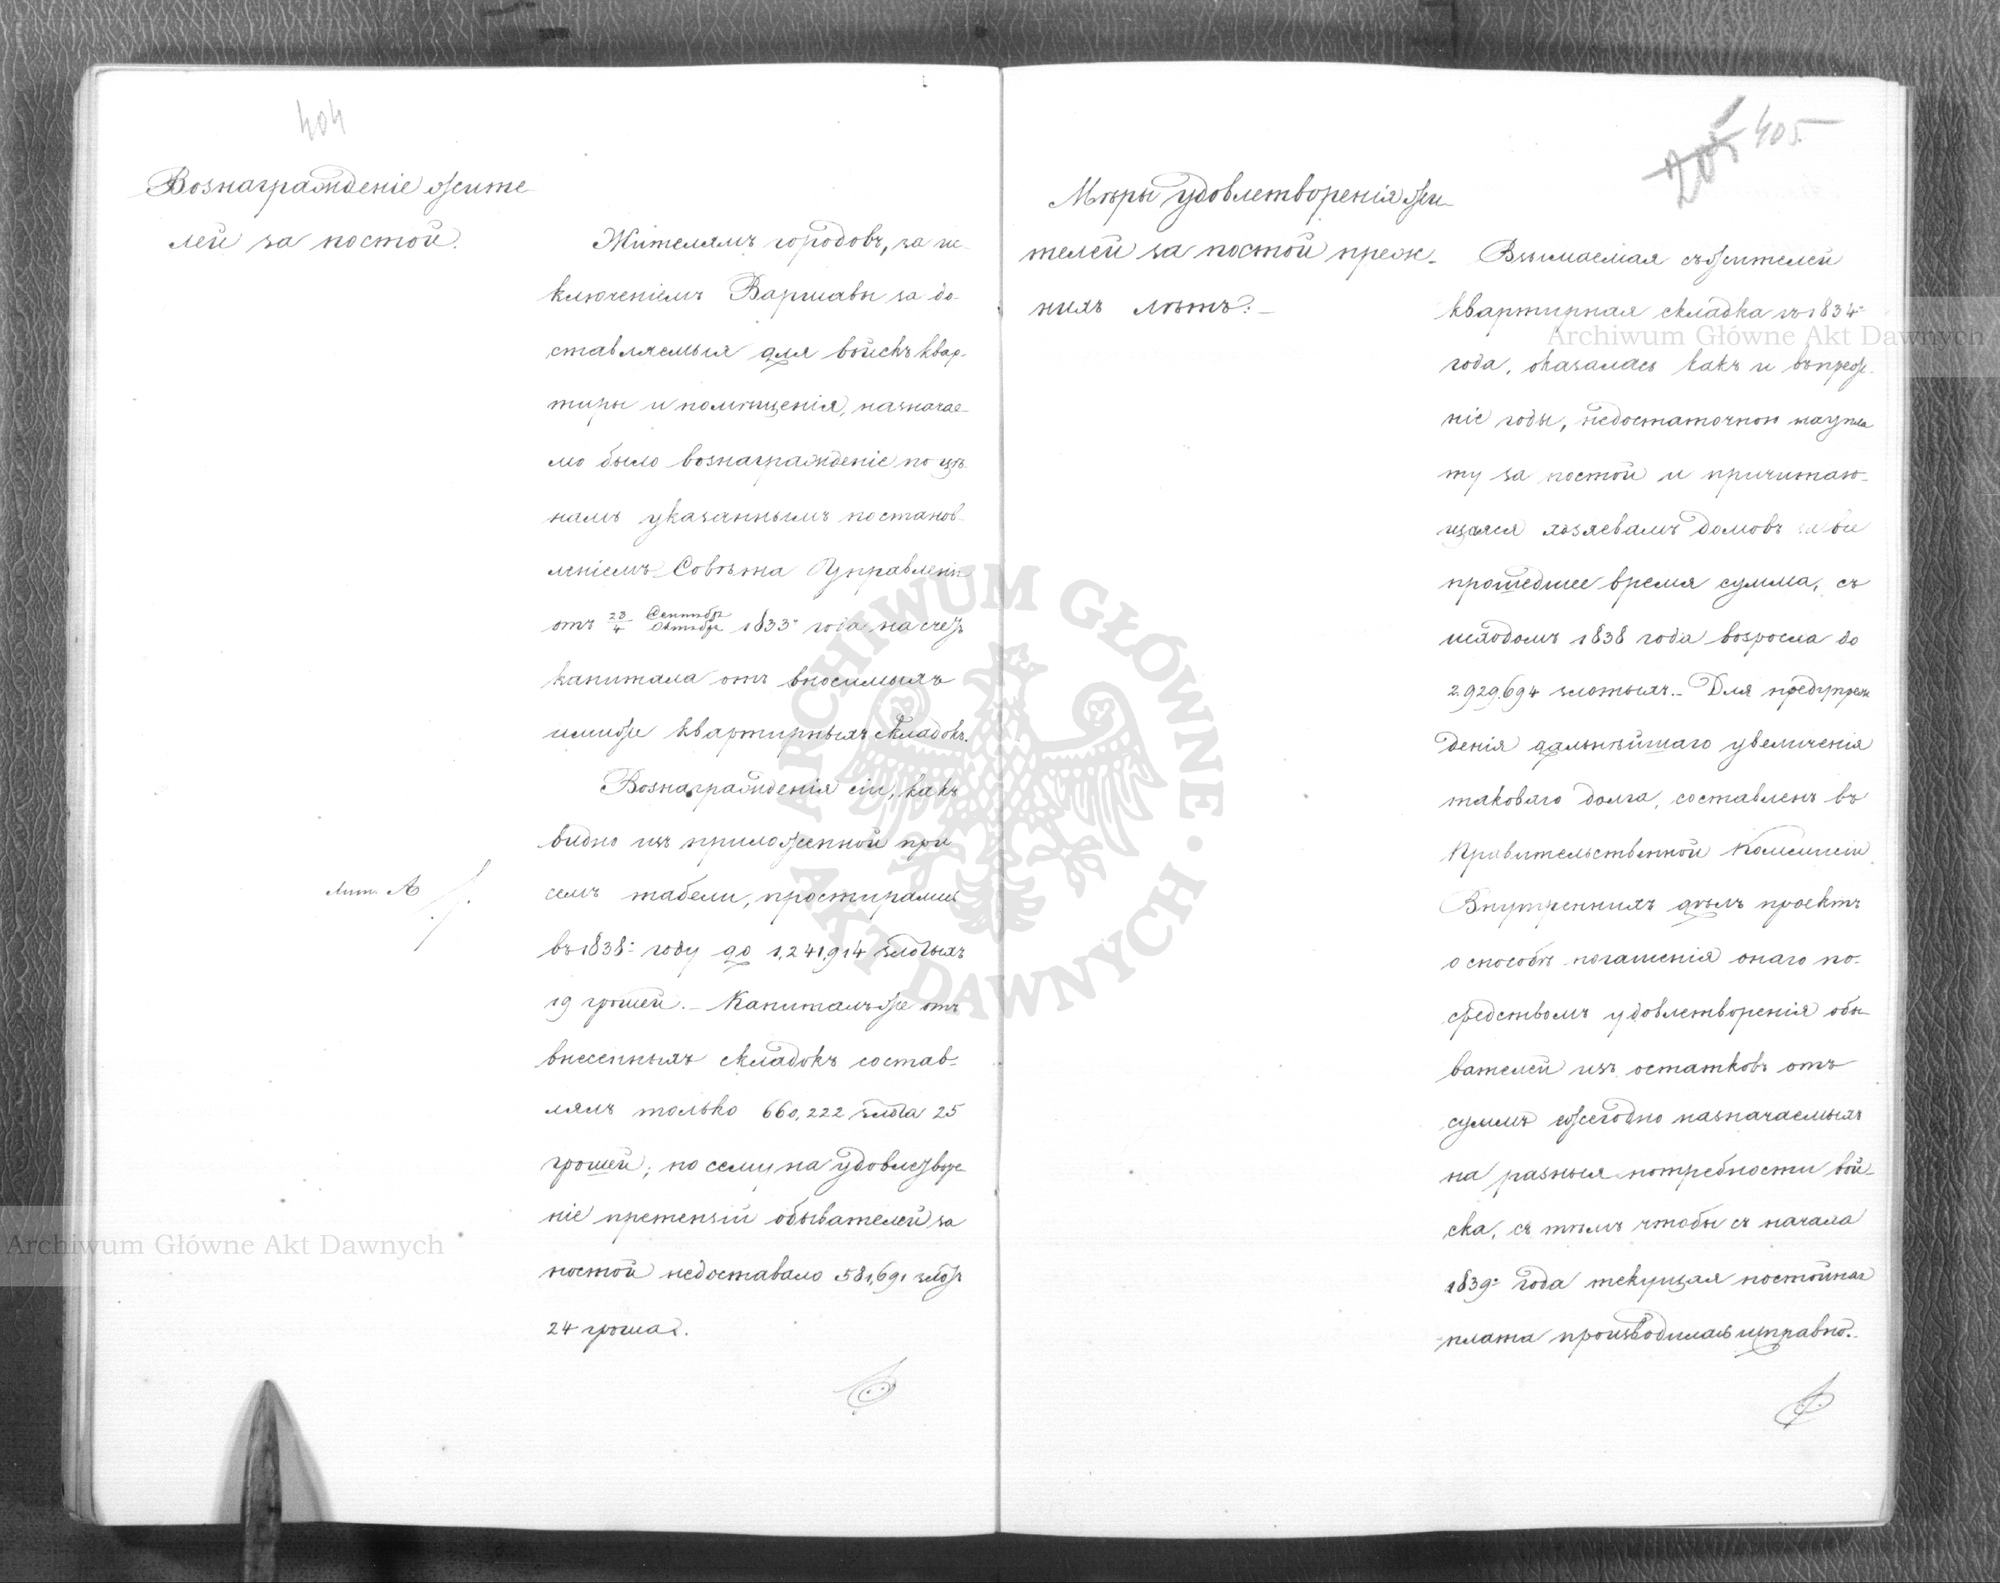 404
Вознагражденіе жите
лей за постой.
Жителямъ городовъ, за ис-
ключеніемъ Варшавы за до-
ставляемыя для войскъ квар-
тиры и помѣщенія, назначае-
мо было вознагражденіе по цѣ-
намъ указаннымъ постанов-
леніемъ Совѣта Управленія
отъ 23/4 Сентября/Октября 1833 года на счетъ
капитала отъ вносимыхъ
ими же квартирныхъ складокъ.
Вознагражденія сіи, какъ
видно изъ приложенной при
Лит. А
семъ табели, простирались
въ 1838 году до 1,241,914 злотыхъ
19 грошей. – Капиталъ же отъ
внесенныхъ складокъ состав-
лялъ только 660,222 злота 25
грошей; по сему на удовлетворе-
ніе претензій обывателей за
постой недоставало 581,691 злот
24 гроша.
205 405.
Мѣры удовлетворенія жи-
телей за постой преж-
нихъ лѣтъ. –
Взымаемая съ жителей
квартирная складка въ 1834
года, оказалась какъ и въ преж-
ніе годы, недостаточною на упла
ту за постой и причитаю-
щаяся хозяевамъ домовъ за все
прошедшее время сумма, съ
исходомъ 1838 года возросла до
2,929,694 злотыхъ. – Для предупреж
денія дальнѣйшаго увеличенія
таковаго долга, составленъ въ
Правительственной Коммисіи
Внутреннихъ дѣлъ проектъ
о способѣ погашенія онаго по-
средствомъ удовлетворенія обы-
вателей изъ остатковъ отъ
суммъ ежегодно назначаемыхъ
на разныя потребности вой-
ска, съ тѣмъ чтобы съ начала
1839 года текущая постойная
плата производилась исправно.
Archiwum Główne Akt Dawnych
Archiwum Główne Akt Dawnych
ARCHIWUM GŁÓWNE · AKT DAWNYCH ·